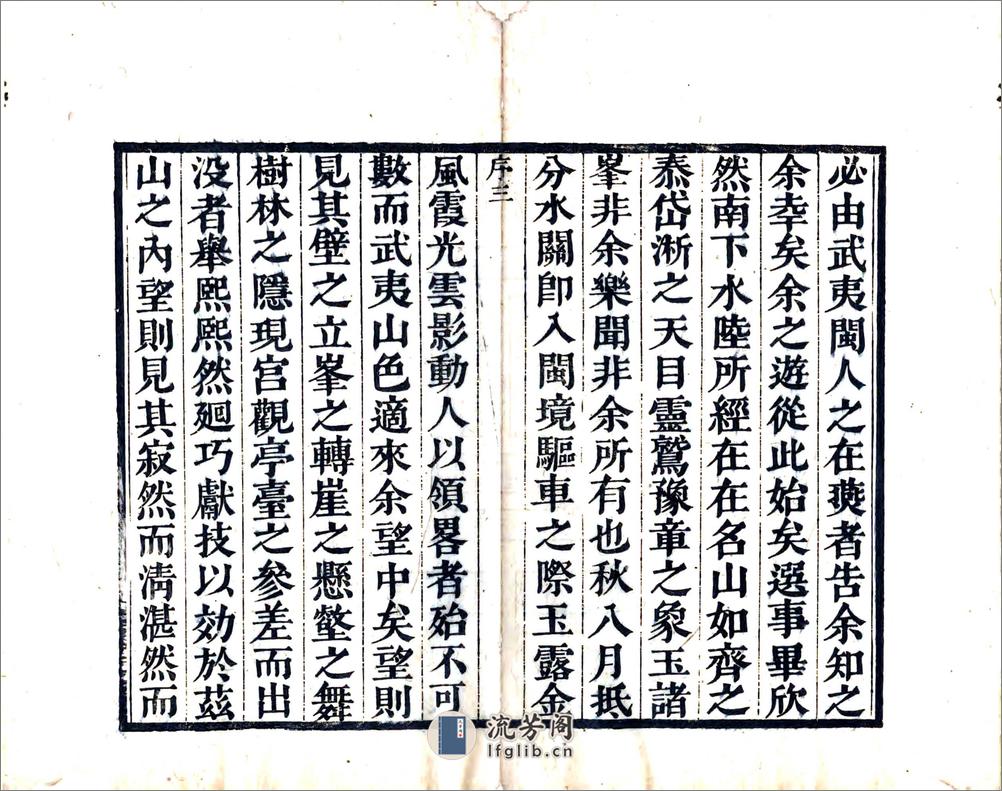 必由武夷閩人之在燕者告余知之
余幸矣余之遊從此始矣選事畢欣
然南下水陸所經在在名山如齊之
泰岱淅之天目靈鷲豫章之象玉諸
峯非余樂聞非余所有也秋八月抵
分水關卽入閩境驅車之際玉露金
序三
風霞光雲影動人以領畧者殆不可
數而武夷山色適來余望中矣望則
見其壁之立峯之轉崖之懸壑之舞
樹林之隱現宮觀亭臺之參差而出
没者舉熙熙然廻巧獻技以効於茲
山之內望則見其寂然而淸湛然而
流芳阁
lfglib.cn